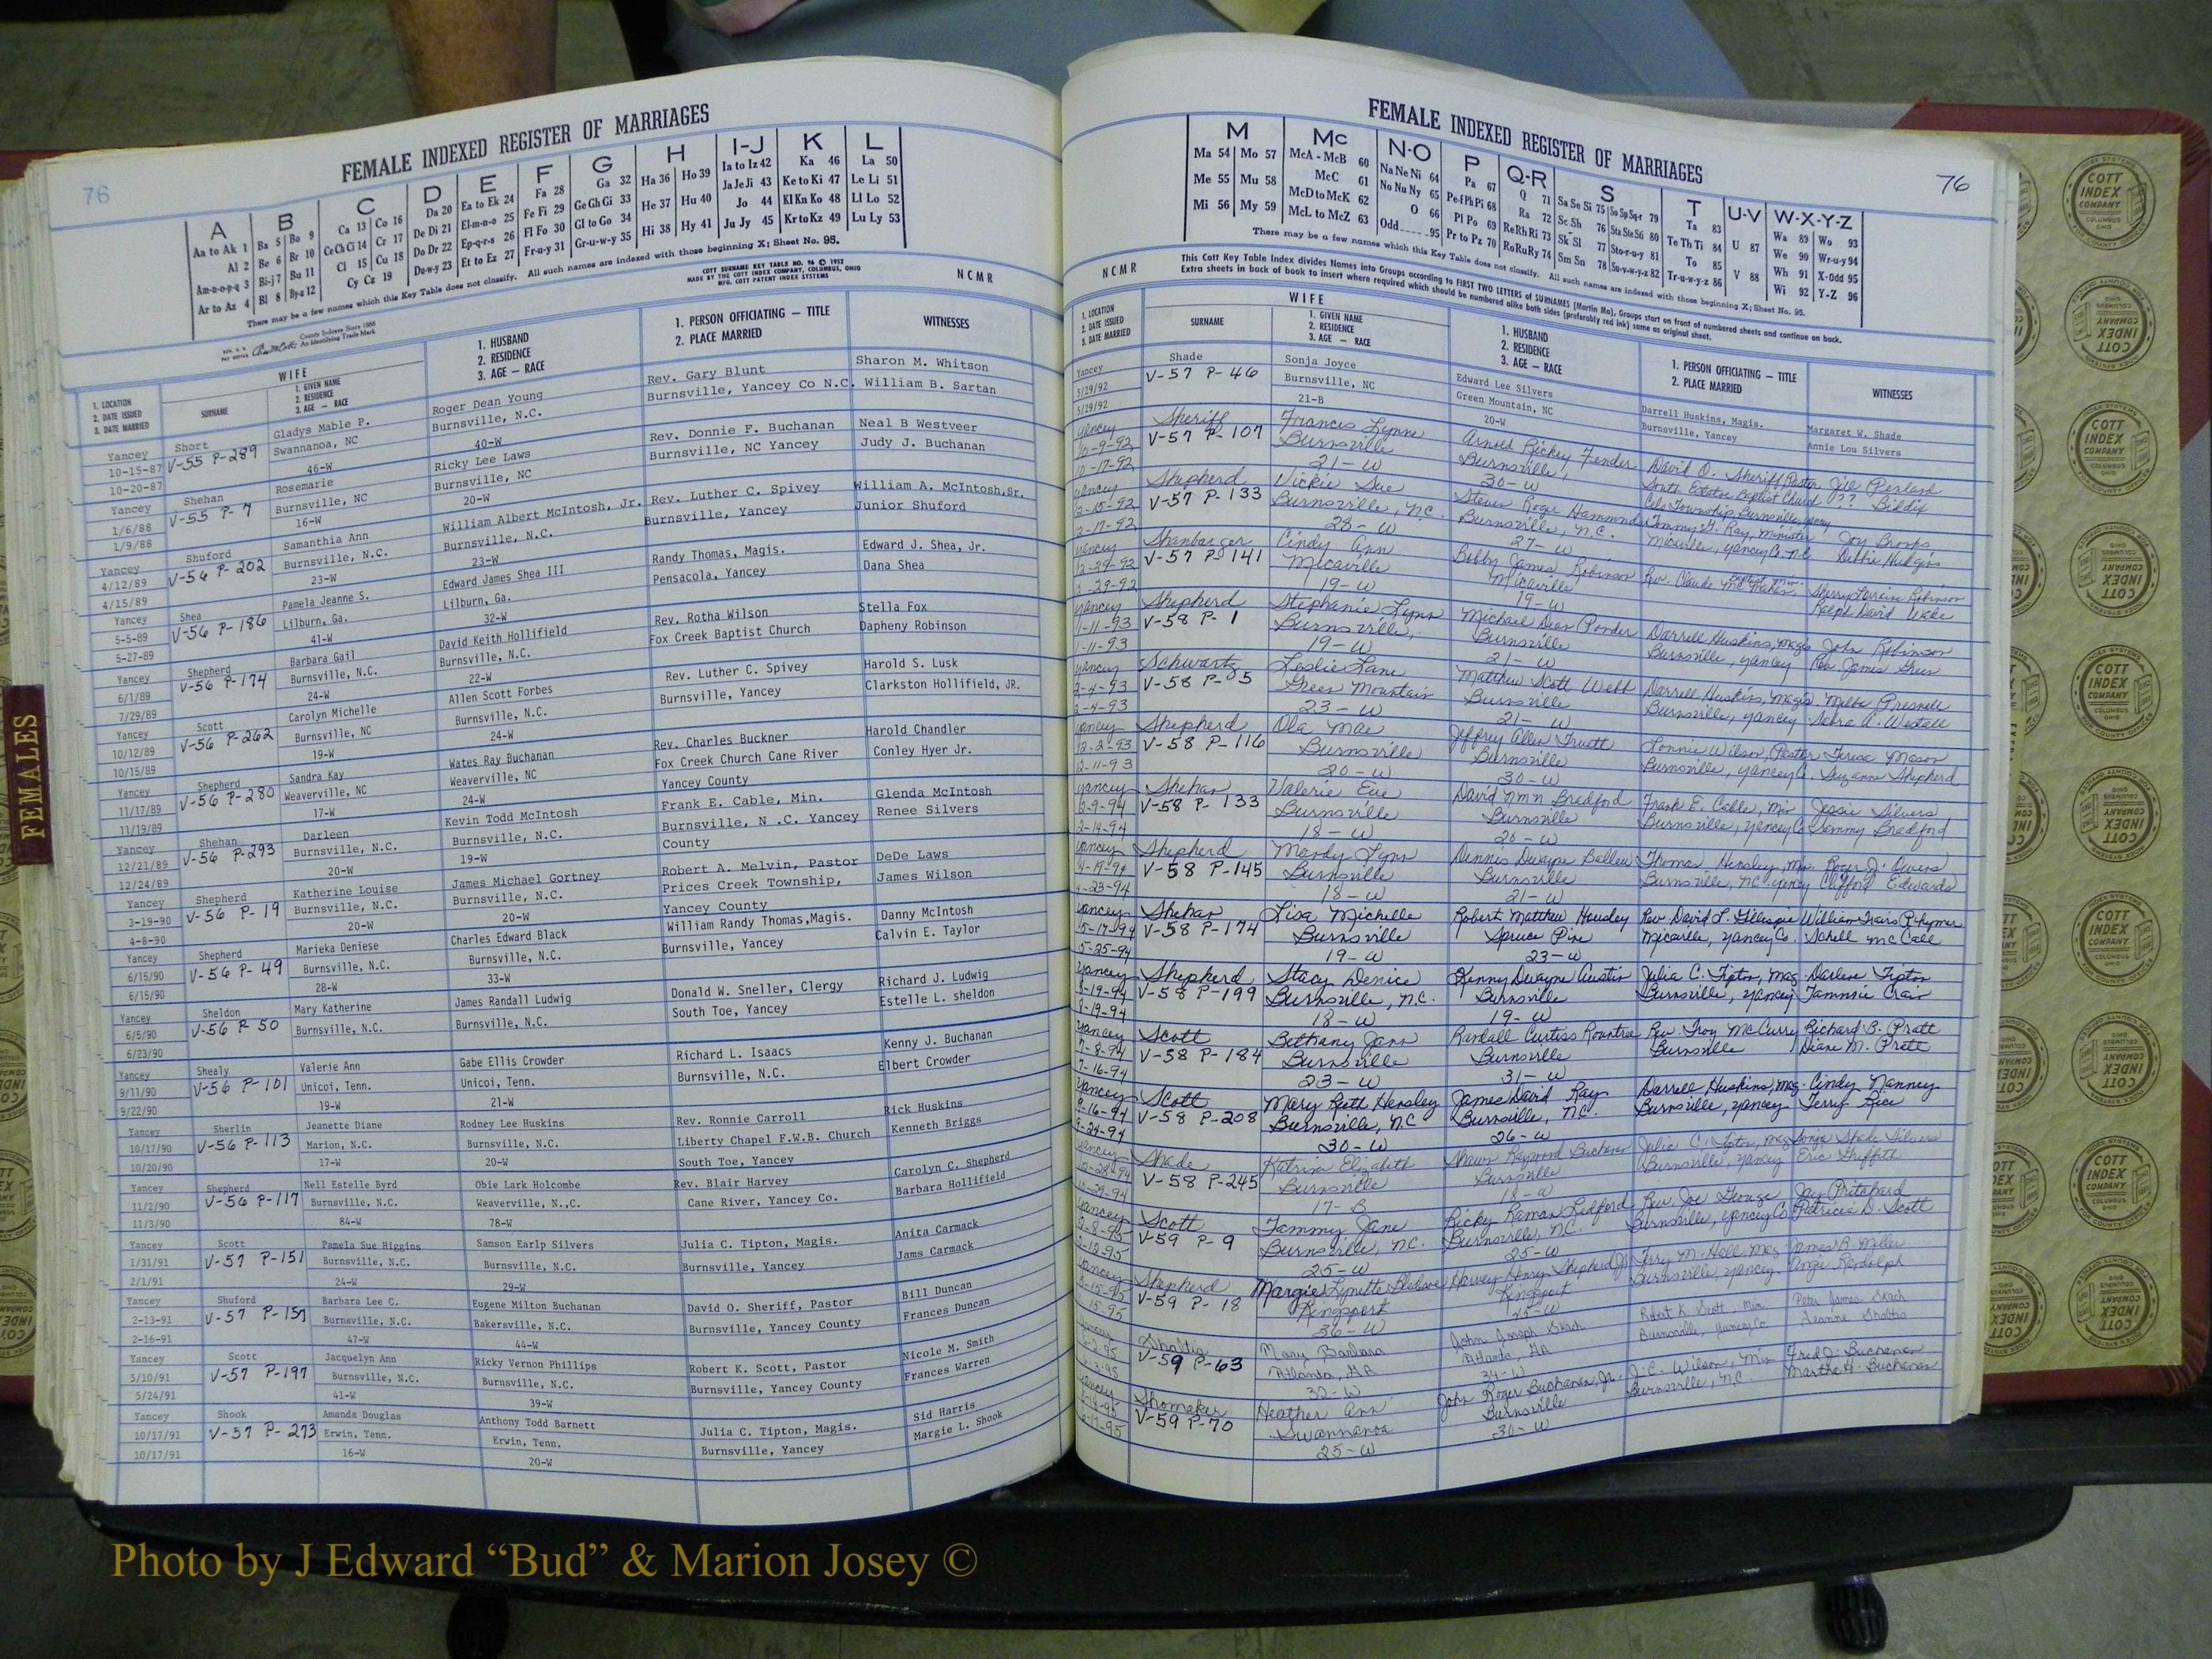 FEMALE INDEXED REGISTER OF MARRIAGES
76
A B C D E F G H I-J K L
Aa to Ak 1
Al 2
Am-n-o-p-q 3
Ar to Az 4
Ba 5 Bo 9
Be 6 Br 10
Bi-j 7 Bu 11
Bl 8 By-z 12
Ca 13 Co 16
Ce Ch Ci 14 Cr 17
Cl 15 Cu 18
Cy Cz 19
Da 20
De Di 21
Do Dr 22
Du-w-y 23
Ea to Ek 24
El-m-n-o 25
Ep-q-r-s 26
Et to Ez 27
Fa 28
Fe Fi 29
Fl Fo 30
Fr-u-y 31
Ga 32
Ge Gh Gi 33
Gl to Go 34
Gr-u-w-y 35
Ha 36 Ho 39
He 37 Hu 40
Hi 38 Hy 41
Ia to Iz 42
Ja Je Ji 43
Jo 44
Ju Jy 45
Ka 46
Ke to Ki 47
Kl Kn Ko 48
Kr to Kz 49
La 50
Le Li 51
Ll Lo 52
Lu Ly 53
There may be a few names which this Key Table does not classify. All such names are indexed with those beginning X; Sheet No. 95.
COTT SURNAME KEY TABLE NO. 96 © 1952
MADE BY THE COTT INDEX COMPANY, COLUMBUS, OHIO
MFG. COTT PATENT INDEX SYSTEMS
NCMR
County Indexes Since 1888
An Identifying Trade Mark
WIFE
1. LOCATION
2. DATE ISSUED
3. DATE MARRIED
SURNAME
1. GIVEN NAME
2. RESIDENCE
3. AGE — RACE
1. HUSBAND
2. RESIDENCE
3. AGE — RACE
1. PERSON OFFICIATING — TITLE
2. PLACE MARRIED
WITNESSES
Yancey Short Gladys Mable P. Roger Dean Young Rev. Gary Blunt Sharon M. Whitson
10-15-87 V-55 P-289 Swannanoa, NC Burnsville, N.C. Burnsville, Yancey Co N.C. William B. Sartan
10-20-87 46-W 40-W
Yancey Shehan Rosemarie Ricky Lee Laws Rev. Donnie F. Buchanan Neal B Westveer
1/6/88 V-55 P-7 Burnsville, NC Burnsville, NC Burnsville, NC Yancey Judy J. Buchanan
1/9/88 16-W 20-W
Yancey Shuford Samanthia Ann William Albert McIntosh, Jr. Rev. Luther C. Spivey William A. McIntosh,Sr.
4/12/89 V-56 P-202 Burnsville, N.C. Burnsville, N.C. Burnsville, Yancey Junior Shuford
4/15/89 23-W 23-W
Yancey Shea Pamela Jeanne S. Edward James Shea III Randy Thomas, Magis. Edward J. Shea, Jr.
5-5-89 V-56 P-186 Lilburn, Ga. Lilburn, Ga. Pensacola, Yancey Dana Shea
5-27-89 41-W 32-W
Yancey Shepherd Barbara Gail David Keith Hollifield Rev. Rotha Wilson Stella Fox
6/1/89 V-56 P-174 Burnsville, N.C. Burnsville, N.C. Fox Creek Baptist Church Dapheny Robinson
7/29/89 24-W 22-W
Yancey Scott Carolyn Michelle Allen Scott Forbes Rev. Luther C. Spivey Harold S. Lusk
10/12/89 V-56 P-262 Burnsville, NC Burnsville, N.C. Burnsville, Yancey Clarkston Hollifield, JR.
10/15/89 19-W 24-W
Yancey Shepherd Sandra Kay Wates Ray Buchanan Rev. Charles Buckner Harold Chandler
11/17/89 V-56 P-280 Weaverville, NC Weaverville, NC Fox Creek Church Cane River Conley Hyer Jr.
11/19/89 17-W 24-W Yancey County
Yancey Shehan Darleen Kevin Todd McIntosh Frank E. Cable, Min. Glenda McIntosh
12/21/89 V-56 P-293 Burnsville, N.C. Burnsville, N.C. Burnsville, N .C. Yancey Renee Silvers
12/24/89 20-W 19-W County
Yancey Shepherd Katherine Louise James Michael Gortney Robert A. Melvin, Pastor DeDe Laws
3-19-90 V-56 P-19 Burnsville, N.C. Burnsville, N.C. Prices Creek Township, James Wilson
4-8-90 20-W 20-W Yancey County
Yancey Shepherd Marieka Deniese Charles Edward Black William Randy Thomas,Magis. Danny McIntosh
6/15/90 V-56 P-49 Burnsville, N.C. Burnsville, N.C. Burnsville, Yancey Calvin E. Taylor
6/15/90 28-W 33-W
Yancey Sheldon Mary Katherine James Randall Ludwig Donald W. Sneller, Clergy Richard J. Ludwig
6/5/90 V-56 P-50 Burnsville, N.C. Burnsville, N.C. South Toe, Yancey Estelle L. sheldon
6/23/90
Yancey Shealy Valerie Ann Gabe Ellis Crowder Richard L. Isaacs Kenny J. Buchanan
9/11/90 V-56 P-101 Unicoi, Tenn. Unicoi, Tenn. Burnsville, N.C. Elbert Crowder
9/22/90 19-W 21-W
Yancey Sherlin Jeanette Diane Rodney Lee Huskins Rev. Ronnie Carroll Rick Huskins
10/17/90 V-56 P-113 Marion, N.C. Burnsville, N.C. Liberty Chapel F.W.B. Church Kenneth Briggs
10/20/90 17-W 20-W South Toe, Yancey
Yancey Shepherd Nell Estelle Byrd Obie Lark Holcombe Rev. Blair Harvey Carolyn C. Shepherd
11/2/90 V-56 P-117 Burnsville, N.C. Weaverville, N.,C. Cane River, Yancey Co. Barbara Hollifield
11/3/90 84-W 78-W
Yancey Scott Pamela Sue Higgins Samson Earlp Silvers Julia C. Tipton, Magis. Anita Carmack
1/31/91 V-57 P-151 Burnsville, N.C. Burnsville, N.C. Burnsville, Yancey Jams Carmack
2/1/91 24-W 29-W
Yancey Shuford Barbara Lee C. Eugene Milton Buchanan David O. Sheriff, Pastor Bill Duncan
2-13-91 V-57 P-157 Burnsville, N.C. Bakersville, N.C. Burnsville, Yancey County Frances Duncan
2-16-91 47-W 44-W
Yancey Scott Jacquelyn Ann Ricky Vernon Phillips Robert K. Scott, Pastor Nicole M. Smith
5/10/91 V-57 P-197 Burnsville, N.C. Burnsville, N.C. Burnsville, Yancey County Frances Warren
5/24/91 41-W 39-W
Yancey Shook Amanda Douglas Anthony Todd Barnett Julia C. Tipton, Magis. Sid Harris
10/17/91 V-57 P-273 Erwin, Tenn. Erwin, Tenn. Burnsville, Yancey Margie L. Shook
10/17/91 16-W 20-W
FEMALES
FEMALE INDEXED REGISTER OF MARRIAGES
76
M Mc N-O P Q-R S T U-V W-X-Y-Z
Ma 54 Mo 57
Me 55 Mu 58
Mi 56 My 59
McA - McB 60
McC 61
McD to McK 62
McL to McZ 63
Na Ne Ni 64
No Nu Ny 65
O 66
Odd 95
Pa 67
Pe-f Ph Pi 68
Pl Po 69
Pr to Pz 70
Q 71
Ra 72
Re Rh Ri 73
Ro Ru Ry 74
Sa Se Si 75 So Sp Sq-r 79
Sc Sh 76 Sta Ste Sti 80
Sk Sl 77 Sto-r-u-y 81
Sm Sn 78 Su-v-w-y-z 82
Ta 83
Te Th Ti 84
To 85
Tr-u-w-y-z 86
U 87
V 88
Wa 89 Wo 93
We 90 Wr-u-y 94
Wh 91 X-Odd 95
Wi 92 Y-Z 96
There may be a few names which this Key Table does not classify. All such names are indexed with those beginning X; Sheet No. 95.
NCMR
This Cott Key Table Index divides Names into Groups according to FIRST TWO LETTERS of SURNAMES (Martin Ma), Groups start on front of numbered sheets and continue on back.
Extra sheets in back of book to insert where required which should be numbered alike both sides (preferably red ink) same as original sheet.
WIFE
1. LOCATION
2. DATE ISSUED
3. DATE MARRIED
SURNAME
1. GIVEN NAME
2. RESIDENCE
3. AGE — RACE
1. HUSBAND
2. RESIDENCE
3. AGE — RACE
1. PERSON OFFICIATING — TITLE
2. PLACE MARRIED
WITNESSES
Yancey Shade Sonja Joyce Edward Lee Silvers Darrell Huskins, Magis. Margaret W. Shade
5/29/92 V-57 P-46 Burnsville, NC Green Mountain, NC Burnsville, Yancey Annie Lou Silvers
5/29/92 21-B 20-W
Yancey Sheriff Francis Lynne Arnold Rickey Fender David O. Sheriff, Pastor Jill
10-9-92 V-57 P-107 Burnsville Burnsville, South Estatoe Baptist Church ?? Biddix
10-17-92 21-W 30-W
Yancey Shepherd Vickie Sue Steven Roger Hammonds Tommy G. Ray, Minister Joy Brooks
V-57 P-133 Burnsville, N.C. Burnsville, N.C. Micaville, Yancey Co. N.C. Debbie Hudgins
28-W 27-W
Yancey Cindy Ann Bobby James Robinson Rev. Claude Sherry Robinson
V-57 P-141 Micaville Micaville Ralph David
19-W 19-W
Yancey Shepherd Stephanie Lynn Michael Dean Ponder Darrell Huskins, Mag. John Robinson
1-11-93 V-58 P-1 Burnsville, Burnsville Burnsville, Yancey Rev. James
1-11-93 19-W 21-W
Yancey Schwartz Leslie Lane Matthew Scott Webb Darrell Huskins, Magis. Presnell
V-58 P-5 Green Mountain Burnsville Burnsville, Yancey Westall
23-W 21-W
Yancey Shepherd Ola Mae Jeffrey Allen Truett Lonnie Wilson, Pastor Teresa Mason
V-58 P-116 Burnsville Burnsville Burnsville, Yancey Co. Suzanne Shepherd
20-W 30-W
Yancey Shehan Valerie Eve David nmn Bradford Frank E. Cable, Min. Jessie Silvers
V-58 P-133 Burnsville Burnsville Burnsville, Yancey Co. Bradford
18-W 20-W
Yancey Shepherd Mandy Lynn Dennis Dwayne Ballew Thomas Hensley, Min. Roger J.
4-19-94 V-58 P-145 Burnsville Burnsville Burnsville, NC Yancey Clifford Edwards
4-23-94 18-W 21-W
Yancey Shehan Lisa Michelle Robert Matthew Housley Rev. David L. Gillespie William Travis Rhymer
V-58 P-174 Burnsville Spruce Pine Micaville, Yancey Co. McCall
19-W 23-W
Yancey Shepherd Stacy Denice Kenny Dwayne Austin Julia C. Tipton, Mag. Darlene Tipton
8-19-94 V-58 P-199 Burnsville, N.C. Burnsville Burnsville, Yancey Tammie Crain
8-19-94 18-W 19-W
Yancey Scott Bethany Jann Randall Curtiss Rountree Rev. Troy McCurry Richard B. Pratt
7-8-94 V-58 P-184 Burnsville Burnsville Burnsville Diane M. Pratt
7-16-94 23-W 31-W
Yancey Scott Mary Ruth Hensley James David Ray Darrell Huskins, Mag. Cindy Nanney
9-16-94 V-58 P-208 Burnsville, NC Burnsville, NC. Burnsville, Yancey Terry Rice
9-24-94 30-W 26-W
Yancey Shade Katrina Elizabeth Shawn Raymond Buchanan Julia C. Tipton, Mag. Sonja Shade Silvers
V-58 P-245 Burnsville Burnsville Burnsville, Yancey Eric Griffith
17-B 18-W
Yancey Scott Tammy Jane Ricky Ramon Ledford Rev. Joe George Jay Pritchard
V-59 P-9 Burnsville, N.C. Burnsville, N.C. Burnsville, Yancey Co. Patricia D. Scott
25-W 25-W
Yancey Shepherd Margie Lynette Harvey Henry Shepherd Jr. Terry M. Hall, Mag. James B. Miller
V-59 P-18 Kingsport Kingsport Burnsville, Yancey Angie Randolph
36-W
Yancey Mary Barbara John Joseph Robert K. Scott, Min. Peter James
V-59 P-63 Atlanta, GA Atlanta, GA Burnsville, Yancey Co. Jeanne
32-W 34-W
Yancey Shomaker Heather Ann John Roger Buchanan, Jr. J.C. Wilson, Min. Fred J. Buchanan
V-59 P-70 Swannanoa Burnsville Burnsville, N.C. Martha H. Buchanan
25-W 30-W
COTT
INDEX
COMPANY
COLUMBUS
OHIO
Photo by J Edward “Bud” & Marion Josey ©